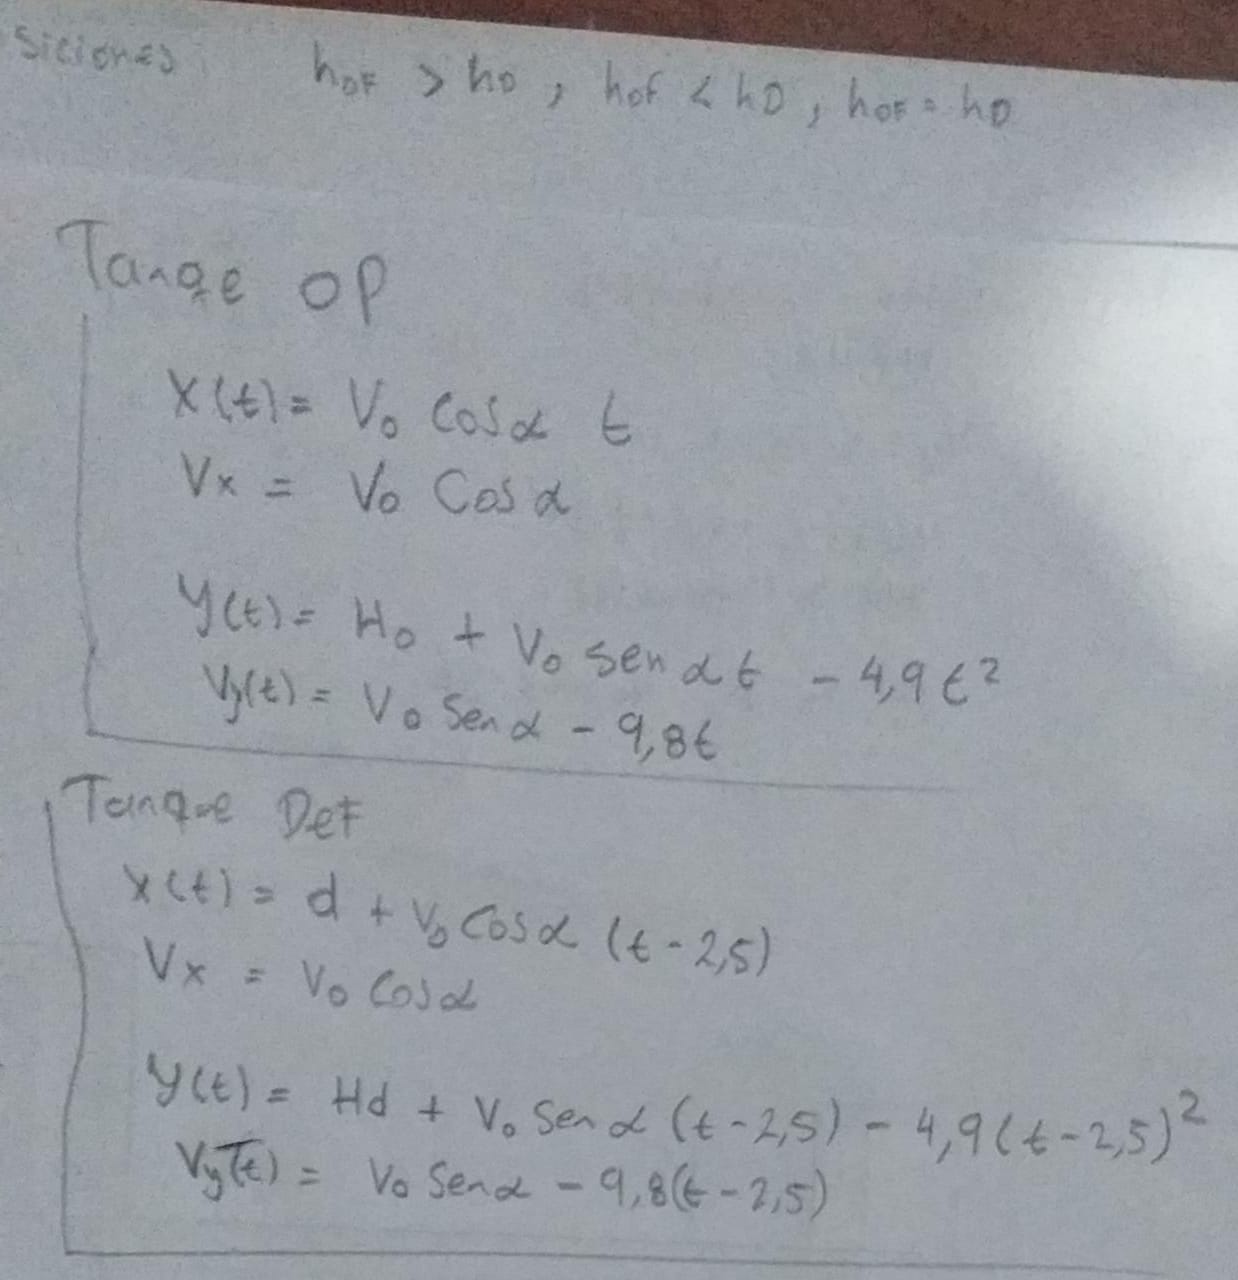 siciones hOF > hD, hOF < hD, hOF = hD
Tanqe OP
X(t) = Vo Cosα t
Vx = Vo Cosα
Y(t) = Ho + Vo senαt - 4,9t²
Vy(t) = Vo Senα - 9,8t
Tanque Def
X(t) = d + Vo Cosα (t-2,5)
Vx = Vo Cosα
Y(t) = Hd + Vo Senα (t-2,5) - 4,9(t-2,5)²
Vy(t) = Vo Senα - 9,8(t-2,5)